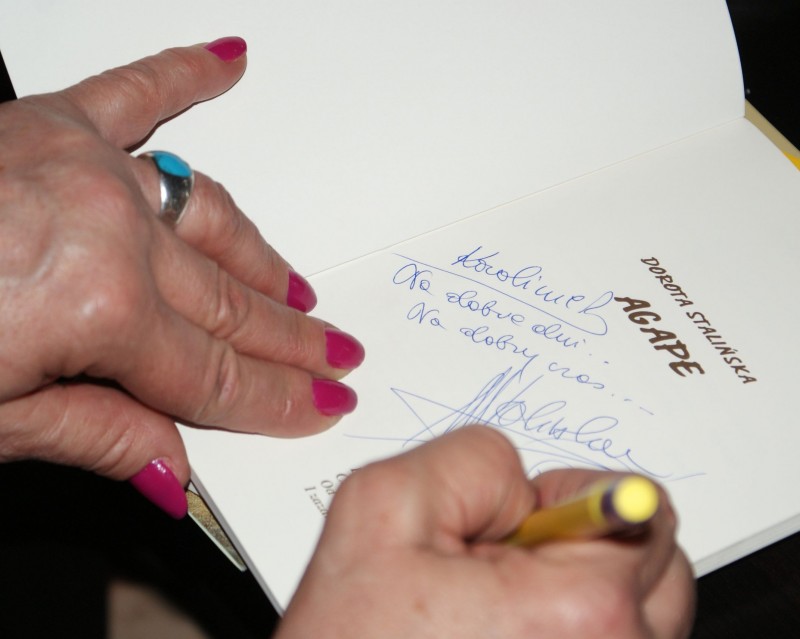 DOROTA STALIŃSKA
AGAPE
Karolinek
Na dobre dni...
Na dobry czas...